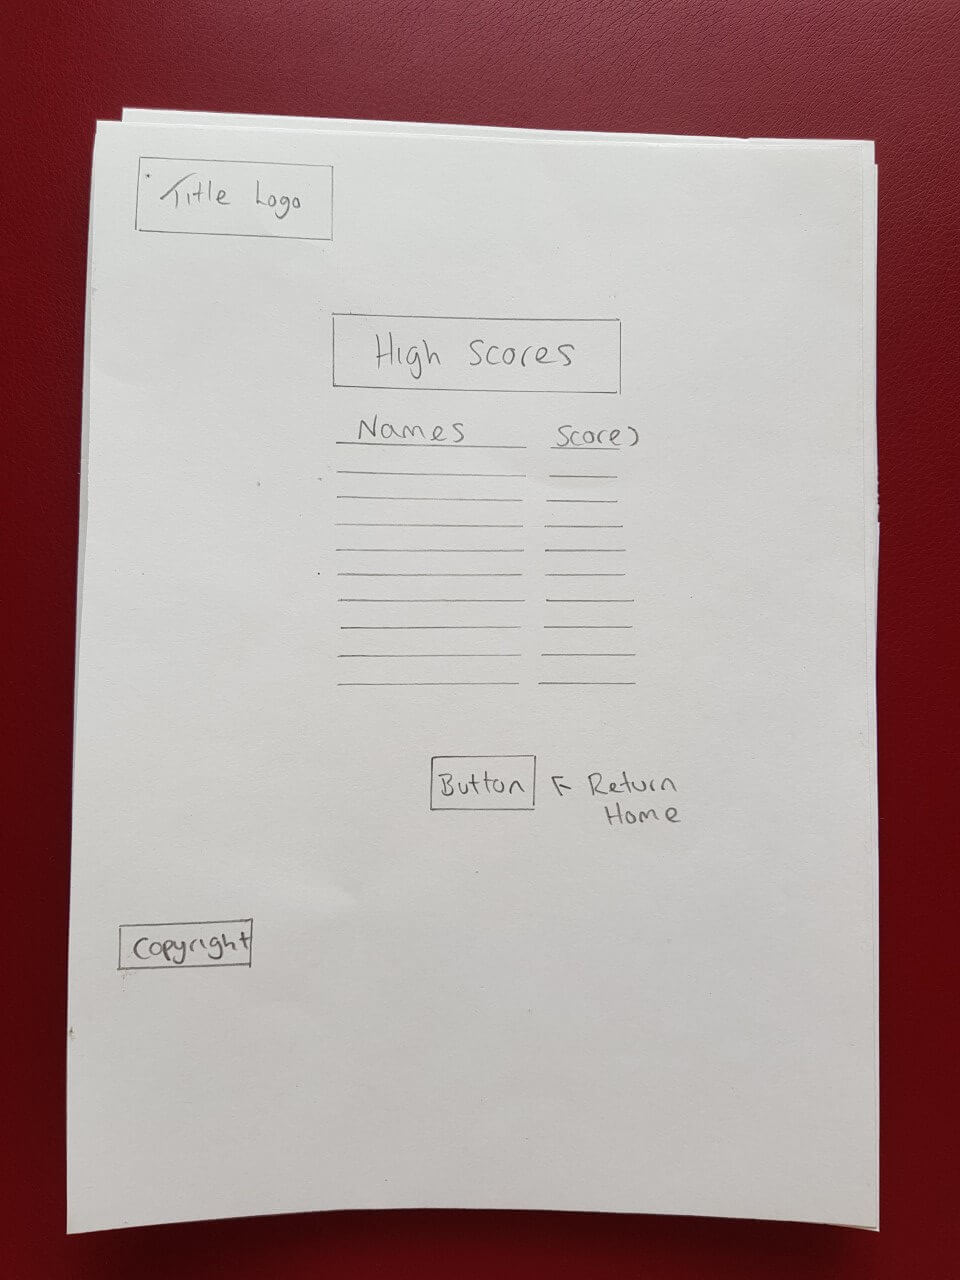 Title Logo
High Scores
Names Scores
Button ← Return
Home
Copyright